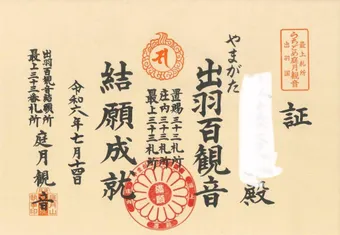 証
最上札所
うちこの庭月観音
出羽国
殿
やまがた
出羽百観音
置賜三十三札所
庄内三十三札所
最上三十三札所
結願成就
令和六年七月十四日
出羽百観音結願所
最上三十三番札所
庭月観音